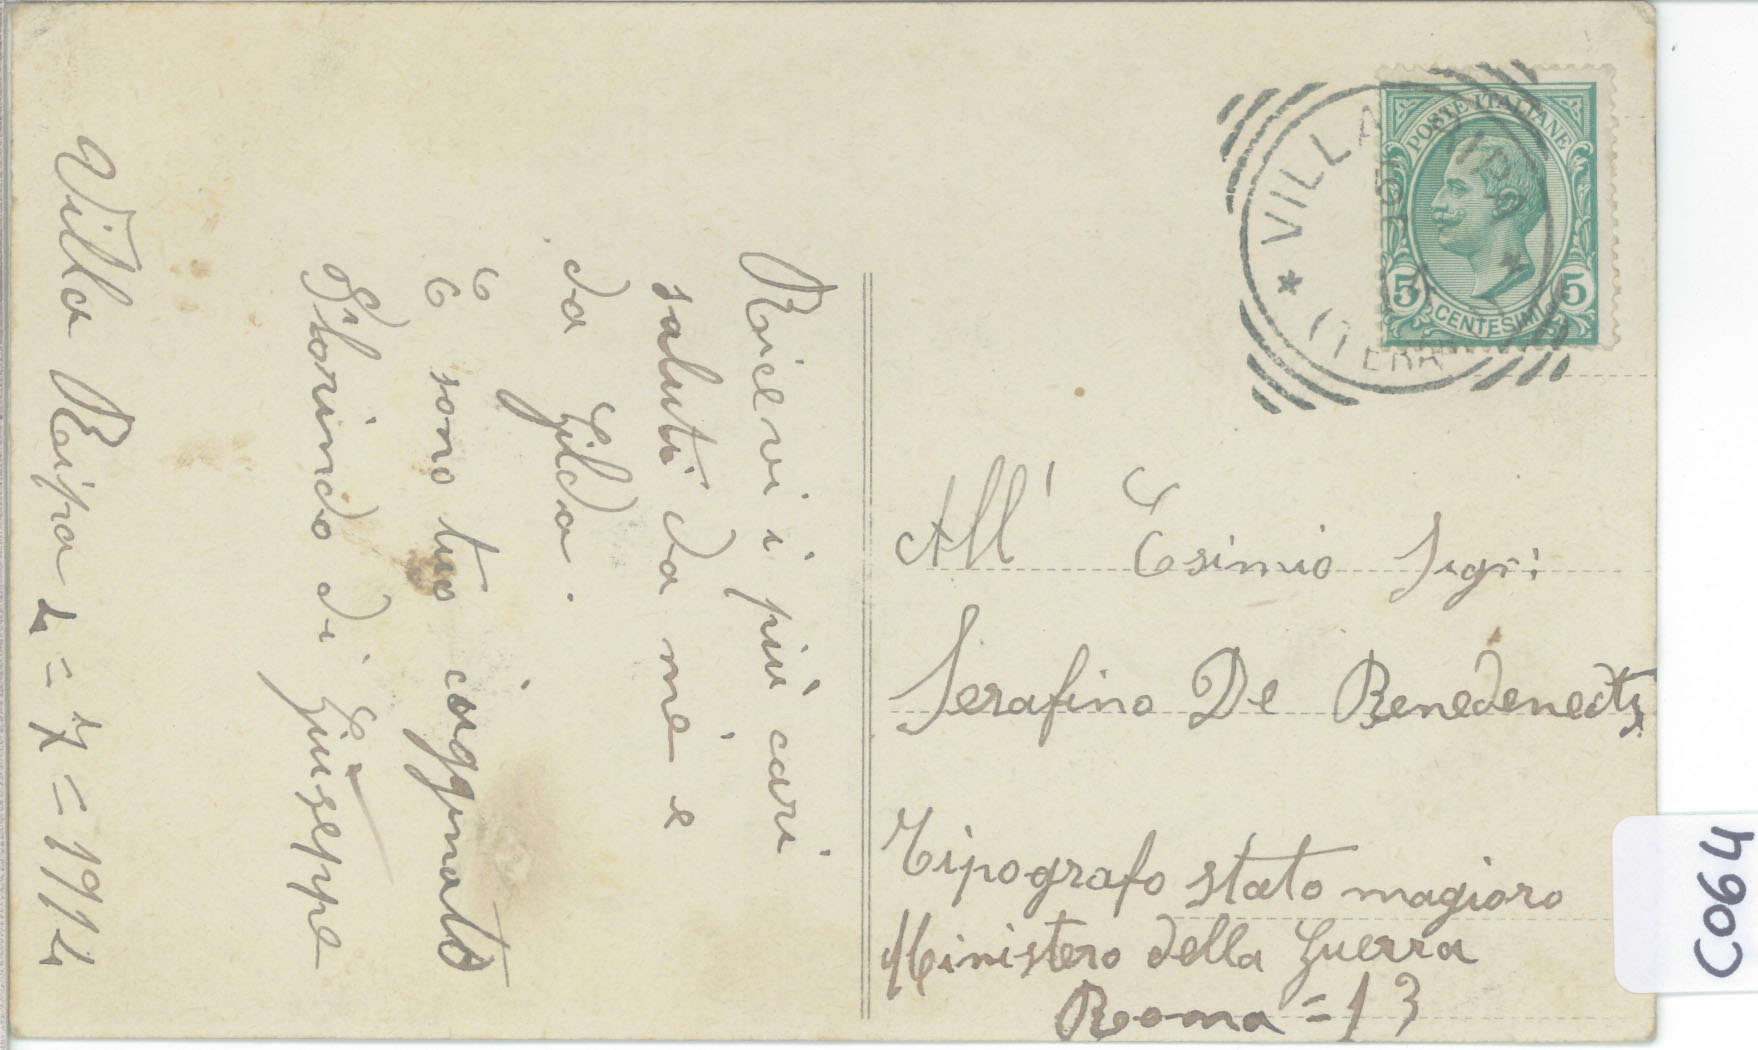 Villa Ripa 4=7=1914
Ricevi i più cari
saluti da me e
da Gilda.
E sono tuo cognato
Florindo di Giuseppe
POSTE ITALIANE
5 5
CENTESIMI
VILLA RIPA
(TERA
All' Esimio Sigri
Serafino De Benedenedts
Tipografo stato magioro
Ministero della Guerra
Roma = 13
C064